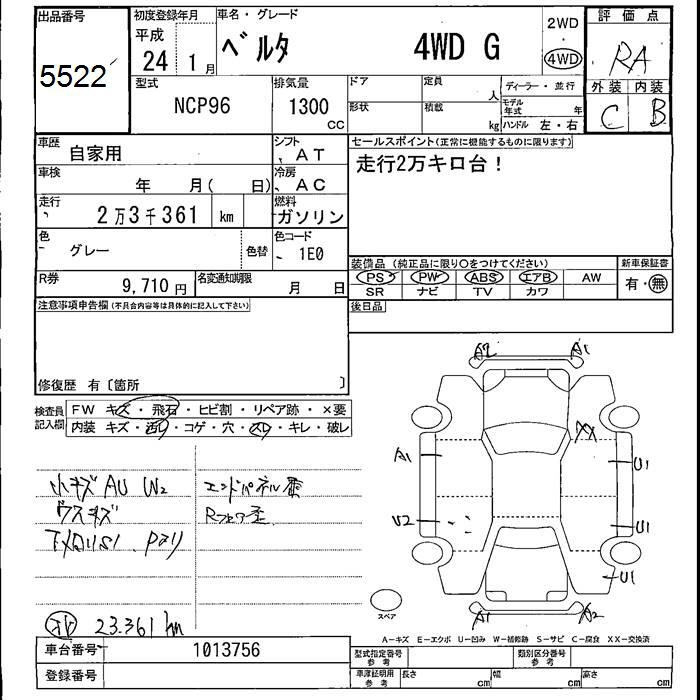 出品番号
5522
初度登録年月
平成
24 1月
車名・グレード
ベルタ 4WD G
2WD
・
4WD
評価点
RA
外装 内装
C B
型式
NCP96
排気量
1300
CC
ドア
形状
定員
人
積載
kg
ディーラー・並行
モデル年式 年
ハンドル 左・右
車歴
自家用
シフト
AT
車検
年 月( 日)
冷房
AC
走行
2万3千361 km
燃料
ガソリン
色
グレー
色替
色コード
1E0
R券
9,710円
名変通知期限
月 日
セールスポイント(正常に機能するものに限ります)
走行2万キロ台!
装備品(純正品に限り○をつけてください)
PS PW ABS エアB AW
SR ナビ TV カワ
新車保証書
有・無
後日品
注意事項申告欄(不具合内容等は具体的に記入して下さい)
修復歴 有〔箇所 〕
検査員
記入欄
FW キズ・飛石・ヒビ割・リペア跡・×要
内装 キズ・汚レ・コゲ・穴・スレ・キレ・破レ
小キズ AU W2
ウスキズ
エンドパネル
23.361 km
A2 A1
XX
A1
U1
U2
U1
U1
A1 A2
スペア
A-キズ E-エクボ U-凹み W-補修跡 S-サビ C-腐食 XX-交換済
車台番号
1013756
登録番号
型式指定番号
参考
類別区分番号
参考
車庫証明用
参考
長さ cm
幅 cm
高さ cm